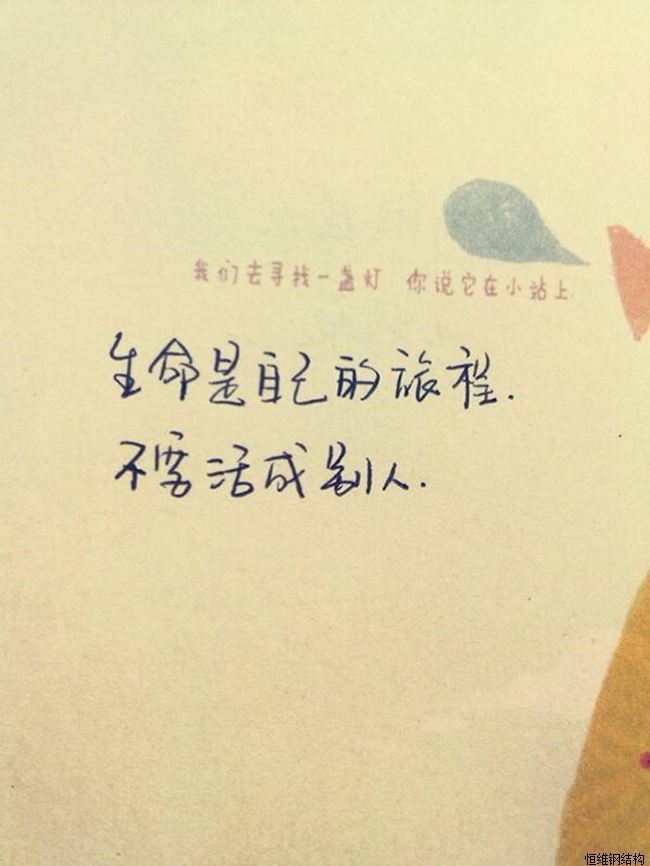 我们去寻找一盏灯 你说它在小站上.
生命是自己的旅程.
不要活成别人.
恒维钢结构